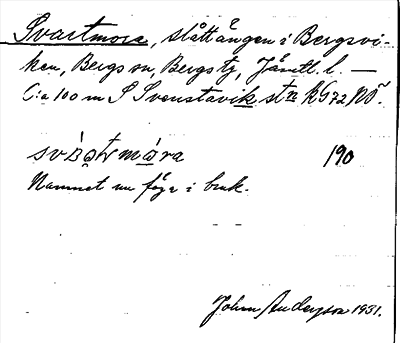 Svartmora, slåttängen i Bergsvi-
ken, Bergs sn, Bergs tg, Jämtl. l. —
C:a 100 m S Svenstavik stn kG72 NÖ.
svát mora 190
Namnet nu föga i bruk.
John Anderzon 1931.